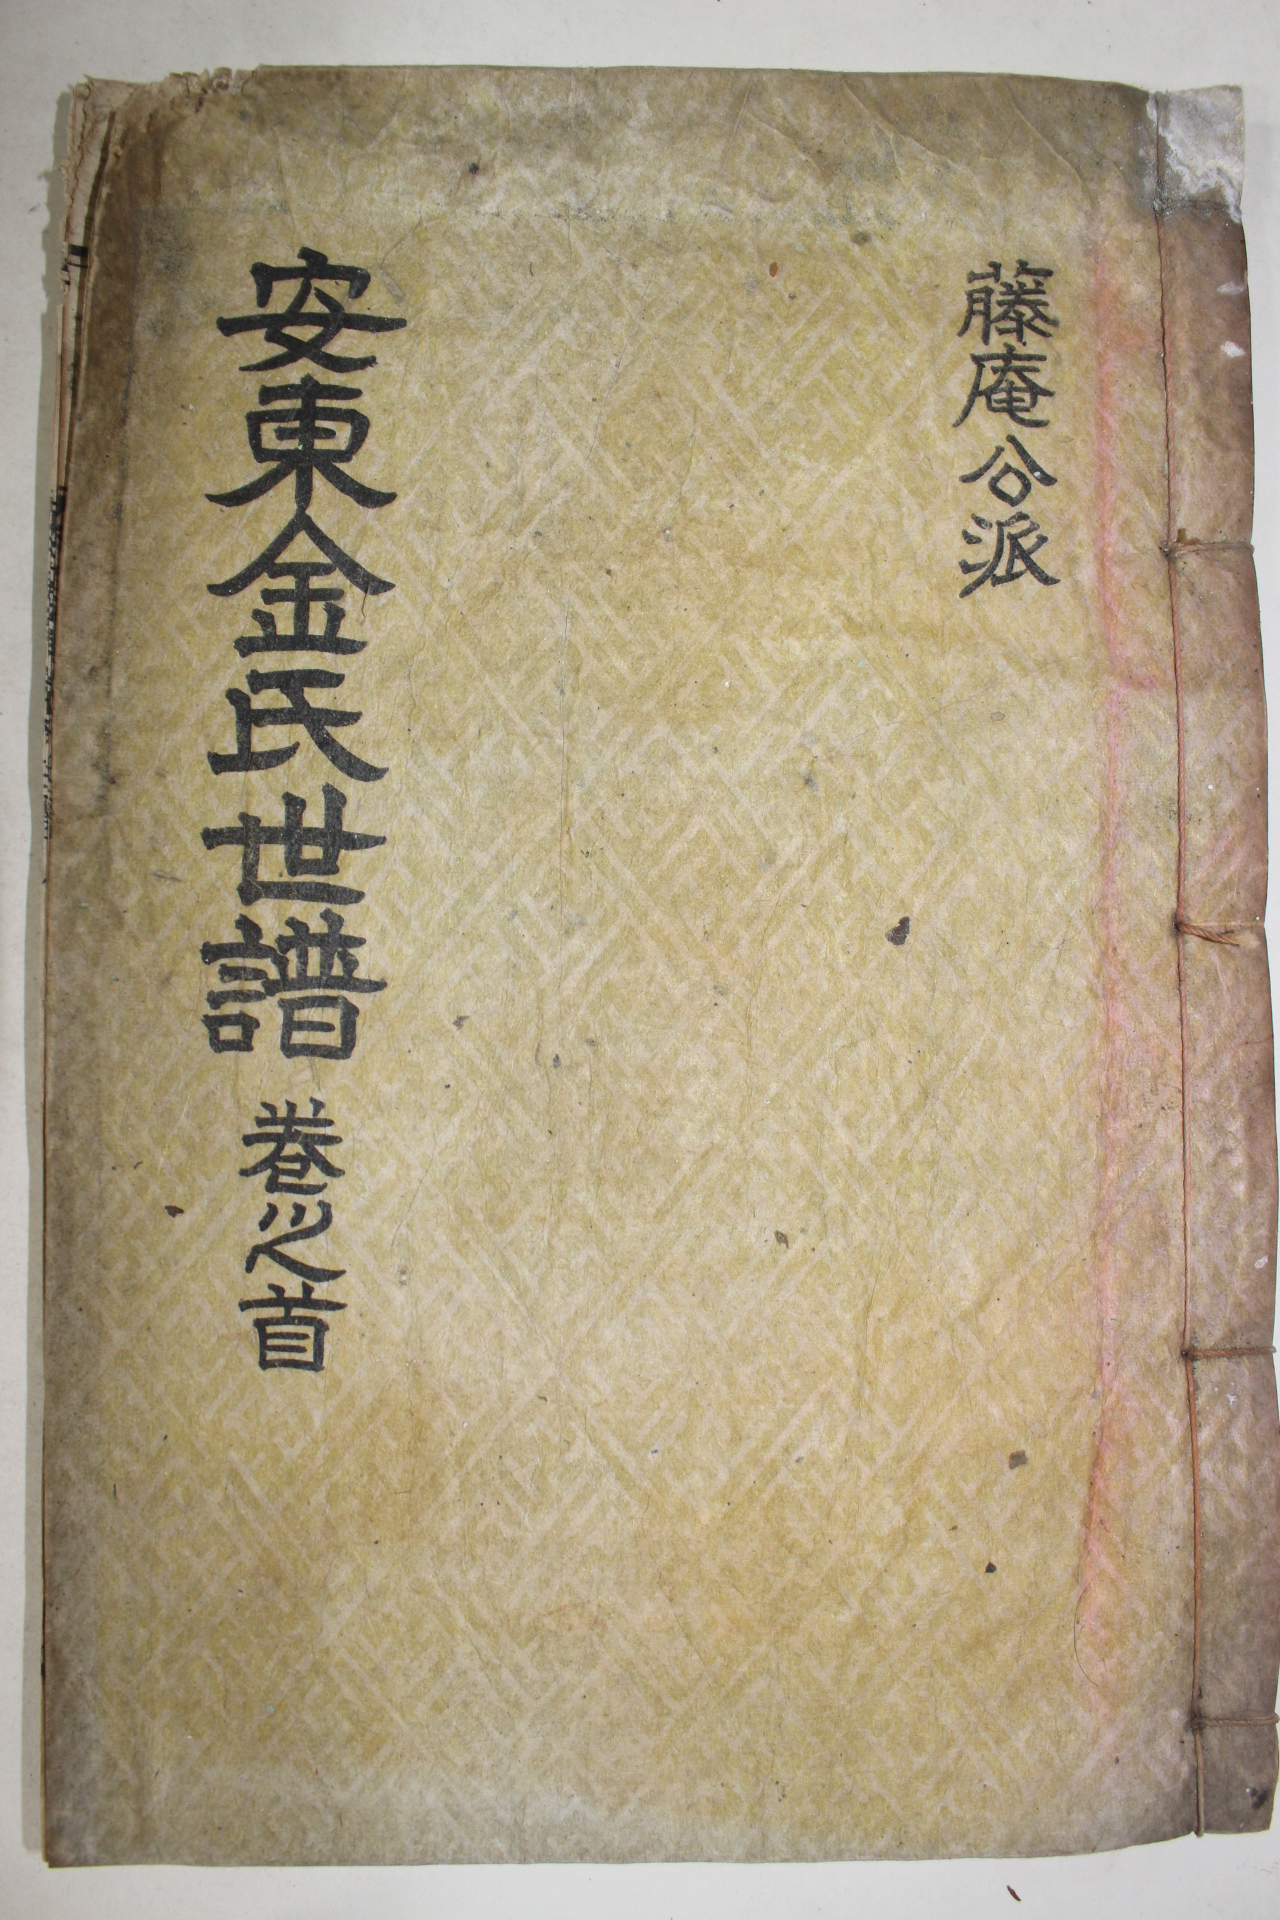 藤庵公派
安東金氏世譜 卷之首